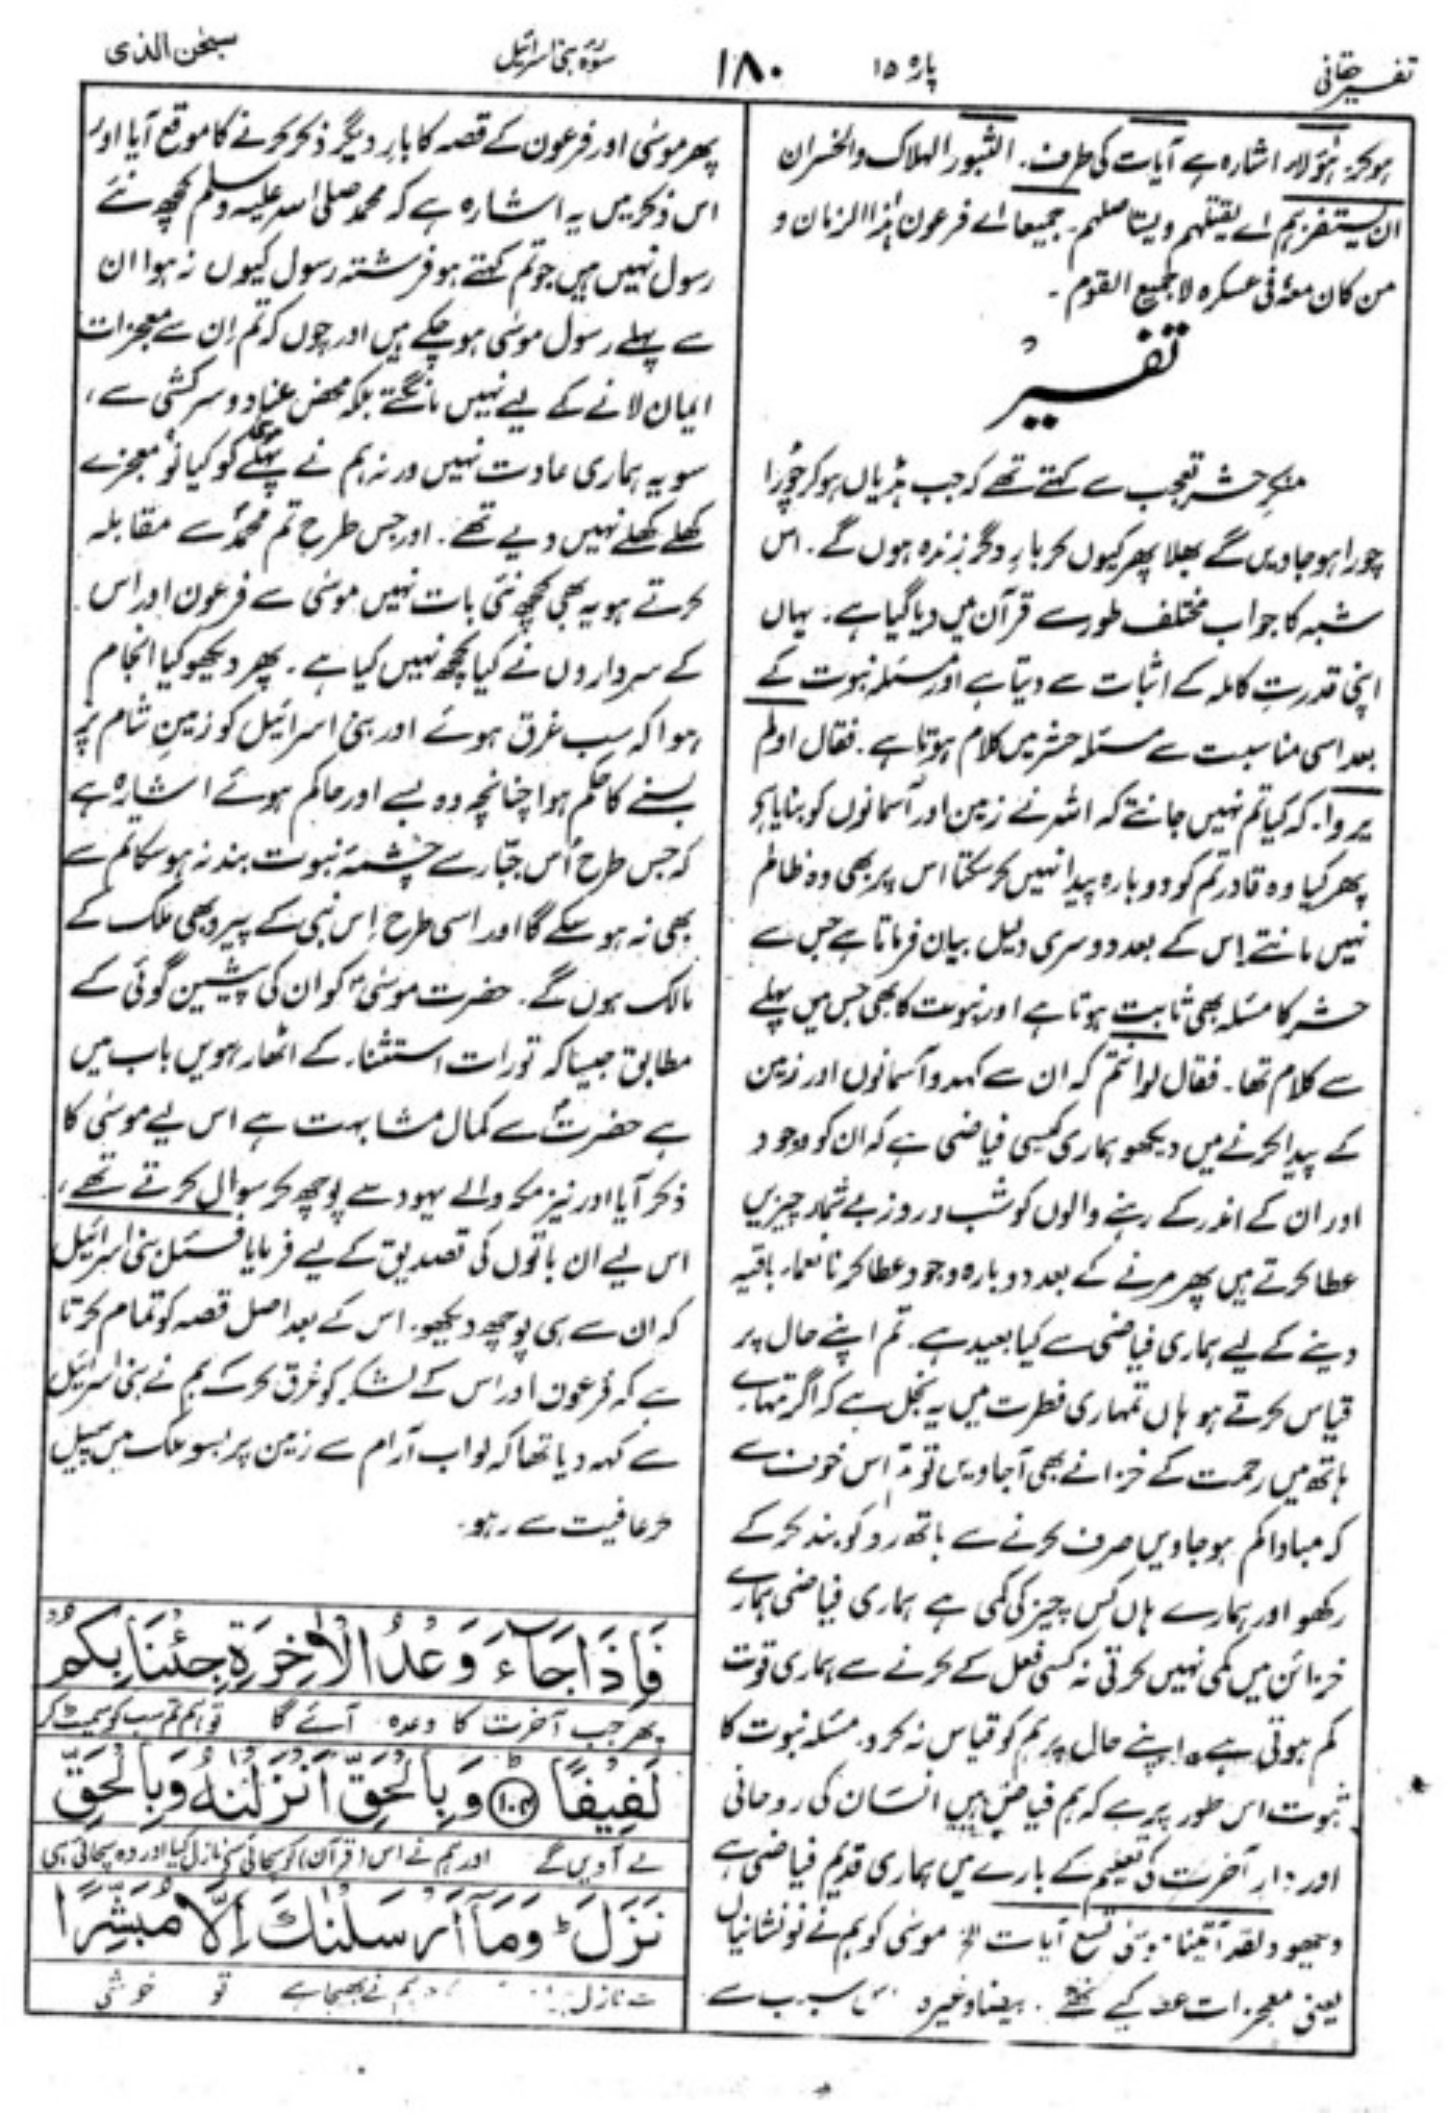 تفسیر حقانی
پارہ ۱۵
۱۸۰
سورہ بنی اسرائیل
سبحٰن الذی
ہوکر: ہٰؤلاء اشارہ ہے آیات کی طرف۔ الثبور الہلاک والخسران
ان یستفزہم اے یقتلہم ویستاصلہم۔ جمیعا اے فرعون ہٰذا الزمان و
من کان معہٗ فی عسکرہ لا جمیع القوم۔
تفسیر
منکرِ حشر تعجب سے کہتے تھے کہ جب ہڈیاں ہوکر چُورا
چورا ہو جاویں گے بھلا پھر کیوں کر بارِ دگر زندہ ہوں گے۔ اس
شبہ کا جواب مختلف طور سے قرآن میں دیا گیا ہے۔ یہاں
اپنی قدرتِ کاملہ کے اثبات سے دیتا ہے اور مسئلہ نبوت کے
بعد اسی مناسبت سے مسئلہ حشر میں کلام ہوتا ہے۔ فقال اولم
یروا۔ کہ کیا تم نہیں جانتے کہ اللہ نے زمین اور آسمانوں کو بنایا ہے
پھر کیا وہ قادر تم کو دوبارہ پیدا نہیں کر سکتا اس پر بھی وہ ظالم
نہیں مانتے اِس کے بعد دوسری دلیل بیان فرماتا ہے جس سے
حشر کا مسئلہ بھی ثابت ہوتا ہے اور نبوت کا بھی جس میں پہلے
سے کلام تھا۔ فقال لو انتم کہ ان سے کہدو آسمانوں اور زمین
کے پیدا کرنے میں دیکھو ہماری کیسی فیاضی ہے کہ ان کو وجود
اور ان کے اندر کے رہنے والوں کو شب و روز بے شمار چیزیں
عطا کرتے ہیں پھر مرنے کے بعد دوبارہ وجود عطا کرنا نعمار باقیہ
دینے کے لیے ہماری فیاضی سے کیا بعید ہے۔ تم اپنے حال پر
قیاس کرتے ہو ہاں تمہاری فطرت میں یہ بخل ہے کہ اگر تمہارے
ہاتھ میں رحمت کے خزانے بھی آجاویں تو تم اِس خوف سے
کہ مبادا کم ہو جاویں صرف کرنے سے ہاتھ روکو بند کرکے
رکھو اور ہمارے ہاں کس چیز کی کمی ہے ہماری فیاضی ہمارے
خزائن میں کمی نہیں کرتی نہ کسی فعل کے کرنے سے ہماری قوت
کم ہوتی ہے۔ اپنے حال پر ہم کو قیاس نہ کرو۔ مسئلہ نبوت کا
ثبوت اس طور پر ہے کہ ہم فیاض ہیں انسان کی روحانی
اور دارِ آخرت کی تعلیم کے بارے میں ہماری قدیم فیاضی ہے
دیکھو ولقد آتینا موسٰی تسع آیات الخ موسٰی کو ہم نے نو نشانیاں
یعنی معجزات عطا کیے تھے۔ بیضا وغیرہ سبب سے
پھر موسٰی اور فرعون کے قصہ کا بارِ دیگر ذکر کرنے کا موقع آیا اور
اس ذکر میں یہ اشارہ ہے کہ محمد صلی اللہ علیہ وسلم کچھ نئے
رسول نہیں ہیں جو تم کہتے ہو فرشتہ رسول کیوں نہ ہوا ان
سے پہلے رسول موسٰی ہو چکے ہیں اور چوں کہ تم اِن سے معجزات
ایمان لانے کے لیے نہیں مانگتے بلکہ محض عناد و سرکشی سے،
سو یہ ہماری عادت نہیں ورنہ ہم نے پہلے موسیٰ کو کیا نَو معجزے
کھلے کھلے نہیں دیے تھے۔ اور جس طرح تم محمدؐ سے مقابلہ
کرتے ہو یہ بھی کچھ نئی بات نہیں موسٰی سے فرعون اور اس
کے سرداروں نے کیا کچھ نہیں کیا ہے۔ پھر دیکھو کیا انجام
ہوا کہ سب غرق ہوئے اور بنی اسرائیل کو زمینِ شام پر
بسنے کا حکم ہوا چنانچہ وہ بسے اور حاکم ہوئے اشارہ ہے
کہ جس طرح اُس جبّار سے چشمۂ نبوت بند نہ ہو سکا تم سے
بھی نہ ہو سکے گا اور اسی طرح اِس نبی کے پیرو بھی ملک کے
مالک ہوں گے۔ حضرت موسٰیؑ کو ان کی پیشین گوئی کے
مطابق جیسا کہ تورات استثناء کے اٹھارہویں باب میں
ہے حضرتؐ سے کمال مشابہت ہے اس لیے موسٰی کا
ذکر آیا اور نیز مکہ والے یہود سے پوچھ کر سوال کرتے تھے،
اس لیے ان باتوں کی تصدیق کے لیے فرمایا فسئل بنی اسرائیل
کہ ان سے ہی پوچھ دیکھو۔ اس کے بعد اصل قصہ کو تمام کرتا
ہے کہ فرعون اور اس کے لشکر کو غرق کرکے ہم نے بنی اسرائیل
سے کہہ دیا تھا کہ لو اب آرام سے زمین پر بسو ملک میں پھیل
کر عافیت سے رہو۔
فَاِذَا جَآءَ وَعْدُ الْاٰخِرَةِ جِئْنَا بِكُمْ
پھر جب آخرت کا وعدہ آئے گا تو ہم تم سب کو سمیٹ کر
لَفِیْفًا ﴿۱۰۴﴾ وَبِالْحَقِّ اَنْزَلْنٰهُ وَبِالْحَقِّ
لے آویں گے اور ہم نے اس (قرآن) کو سچائی سے نازل کیا اور وہ سچائی ہی
نَزَلَ ؕ وَمَآ اَرْسَلْنٰكَ اِلَّا مُبَشِّرًا
سے نازل ہم نے بھیجا ہے تو خوشی